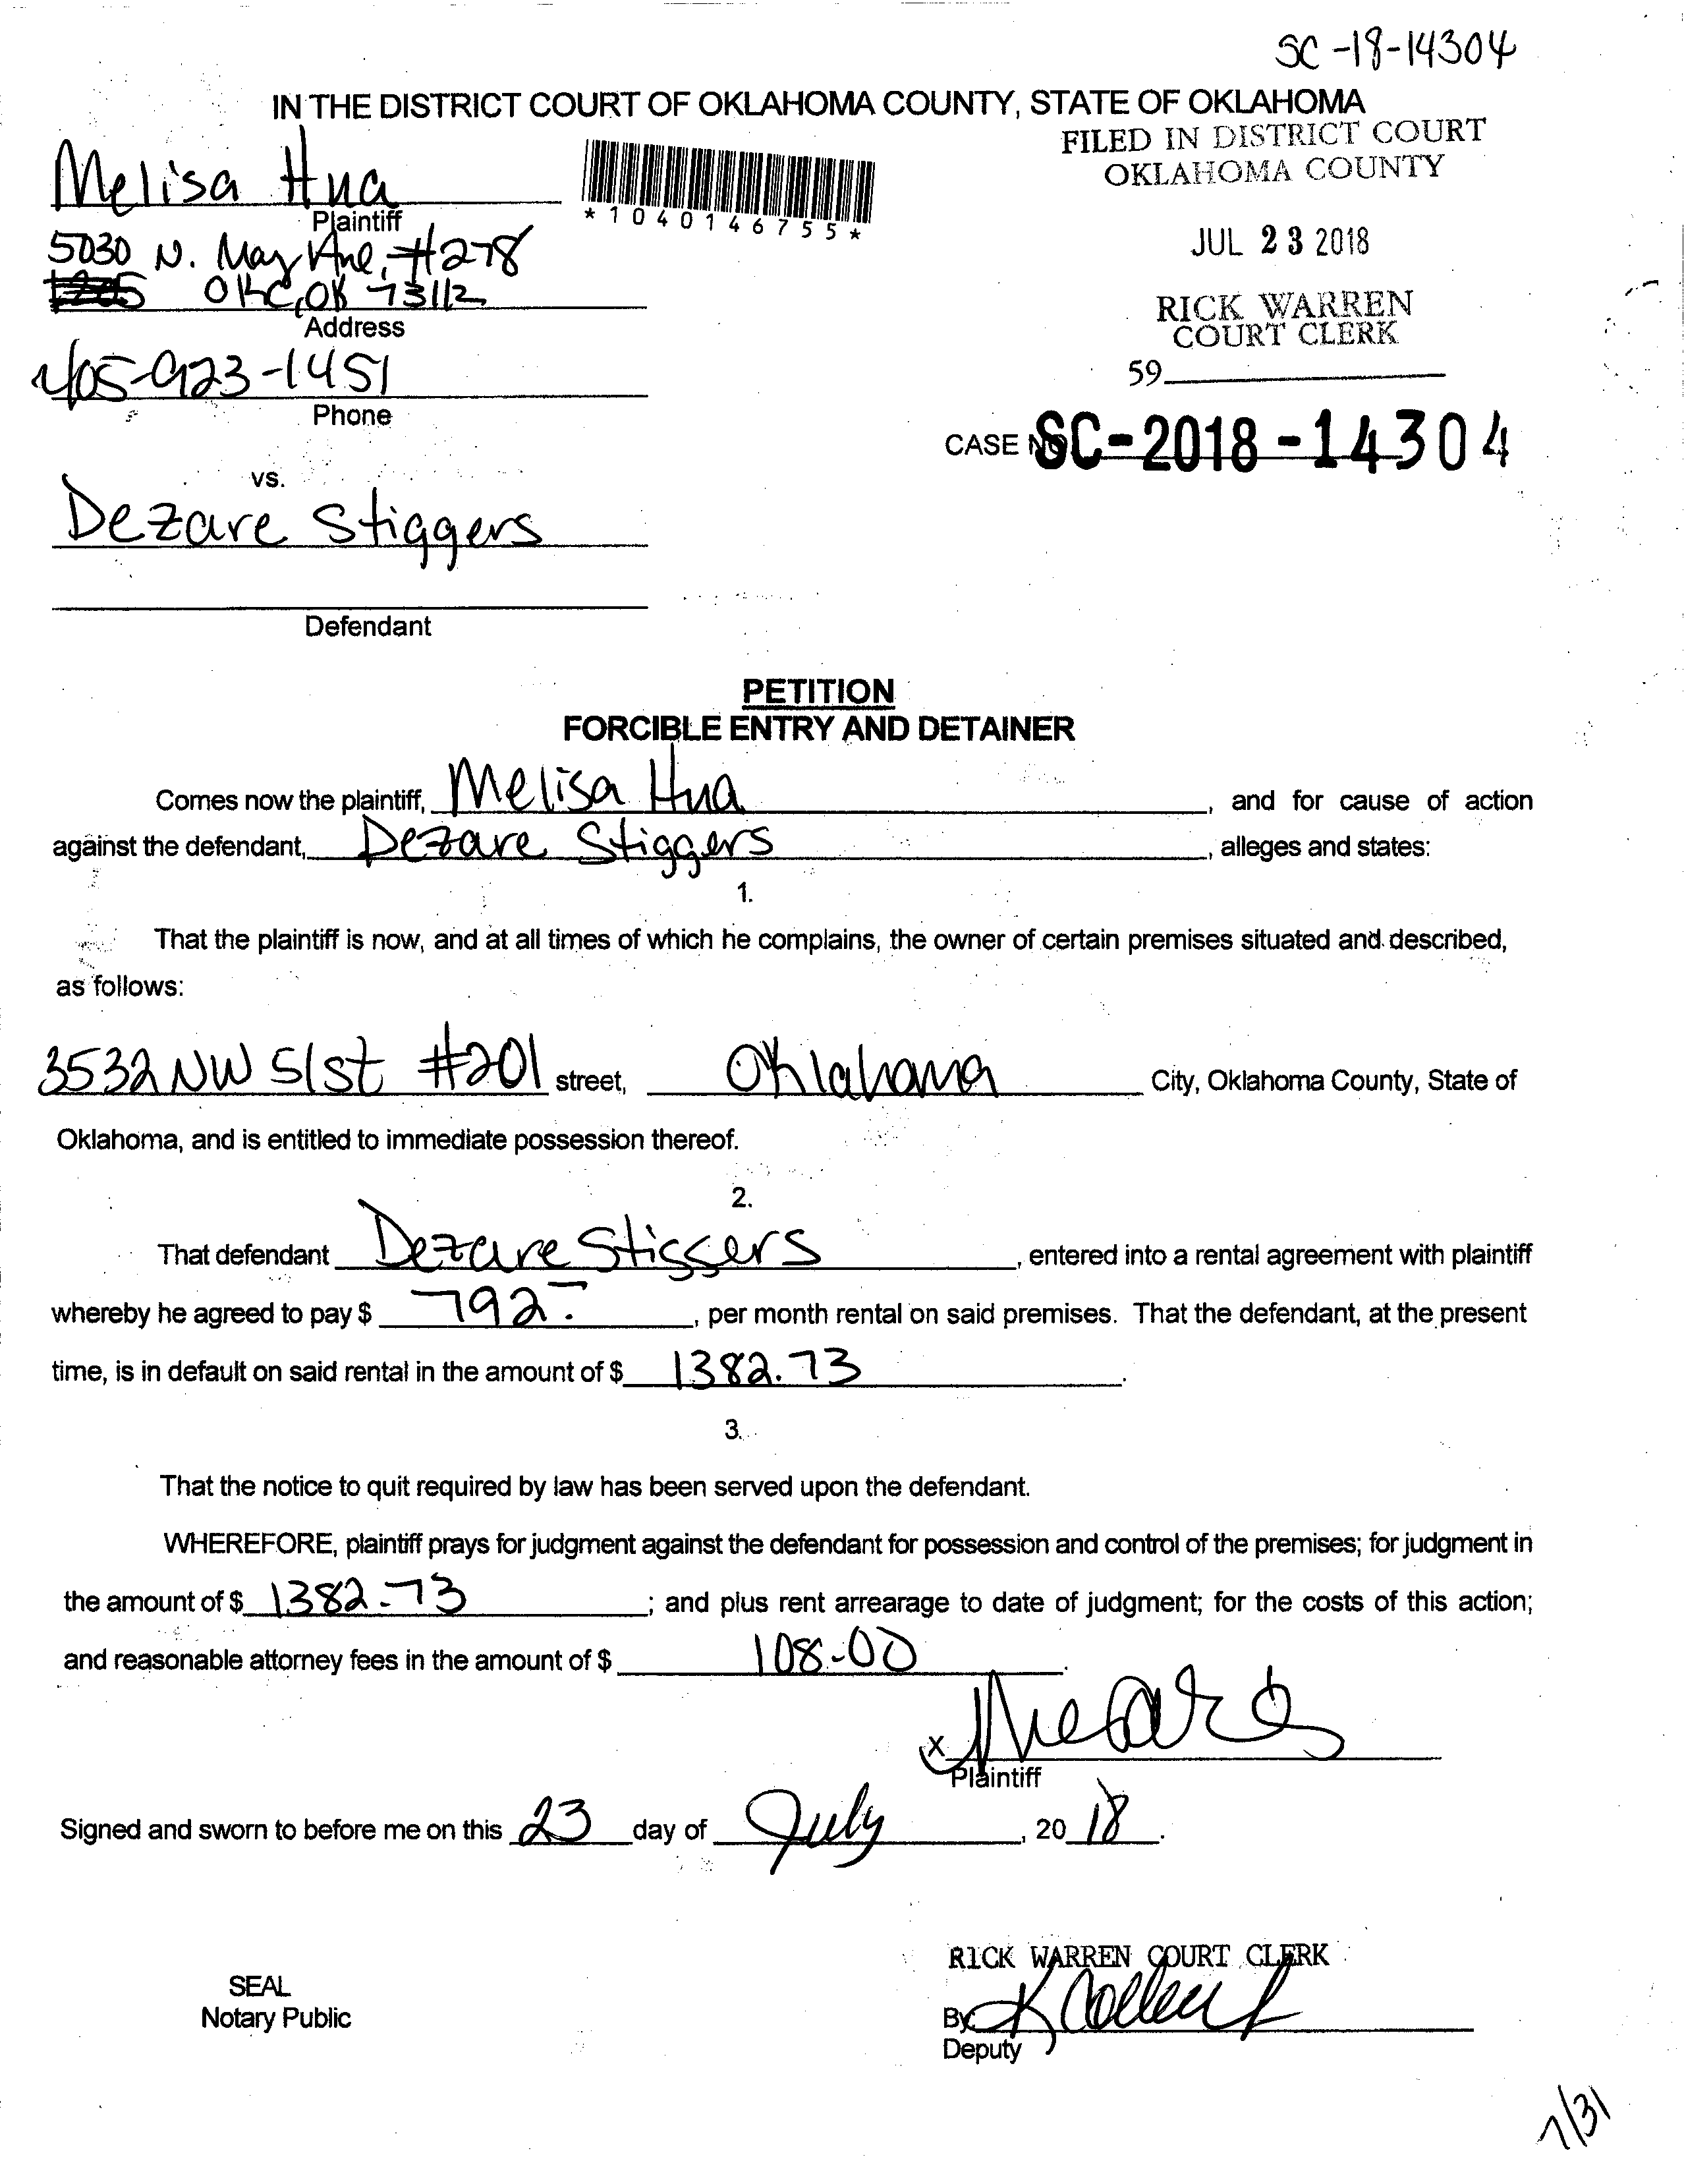 SC-18-14304
IN THE DISTRICT COURT OF OKLAHOMA COUNTY, STATE OF OKLAHOMA
FILED IN DISTRICT COURT
OKLAHOMA COUNTY
Melisa Hua
Plaintiff
*1040146755*
JUL 23 2018
5030 N. May Ave, #278
OKC, OK 73112
Address
RICK WARREN
COURT CLERK
405-923-1451
Phone
59
CASE NO SC-2018-14304
vs.
Dezare Stiggers
Defendant
PETITION
FORCIBLE ENTRY AND DETAINER
Comes now the plaintiff, Melisa Hua, and for cause of action
against the defendant, Dezare Stiggers, alleges and states:
1.
That the plaintiff is now, and at all times of which he complains, the owner of certain premises situated and described,
as follows:
3532 NW 51st #201 street, Oklahoma City, Oklahoma County, State of
Oklahoma, and is entitled to immediate possession thereof.
2.
That defendant Dezare Stiggers, entered into a rental agreement with plaintiff
whereby he agreed to pay $ 792.-, per month rental on said premises. That the defendant, at the present
time, is in default on said rental in the amount of $ 1382.73.
3.
That the notice to quit required by law has been served upon the defendant.
WHEREFORE, plaintiff prays for judgment against the defendant for possession and control of the premises; for judgment in
the amount of $ 1382.73; and plus rent arrearage to date of judgment; for the costs of this action;
and reasonable attorney fees in the amount of $ 108.00.
X
Plaintiff
Signed and sworn to before me on this 23 day of July, 20 18.
RICK WARREN COURT CLERK
SEAL
Notary Public
By:
Deputy
7/31